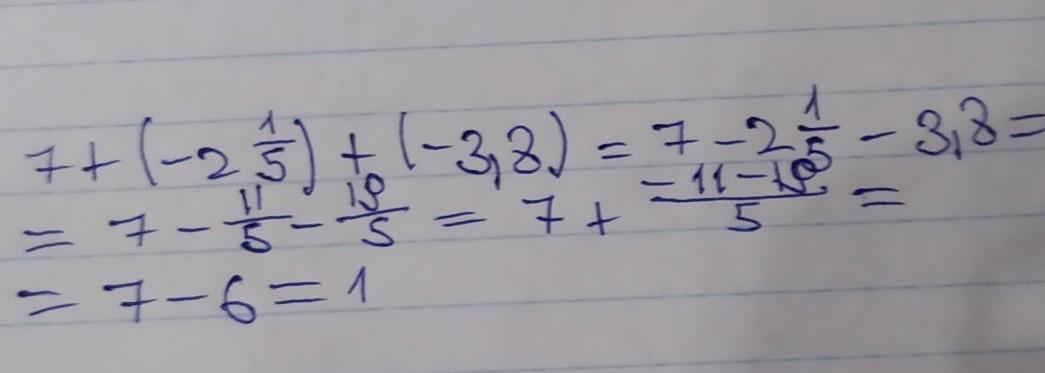 7+(-2 1/5)+(-3,8)=7-2 1/5-3,8=
=7-11/5-19/5=7+(-11-19)/5=
=7-6=1